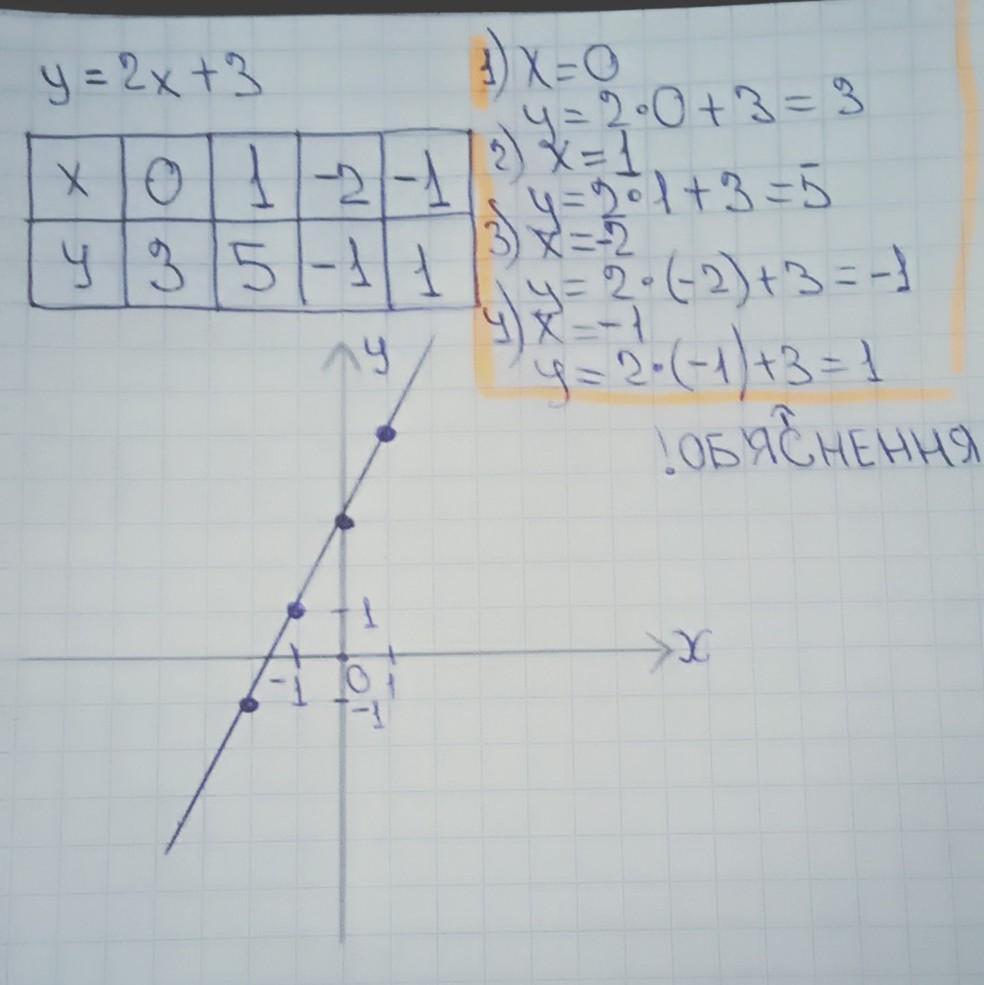 y = 2x + 3
x 0 1 -2 -1
y 3 5 -1 1
1) x = 0
y = 2·0 + 3 = 3
2) x = 1
y = 2·1 + 3 = 5
3) x = -2
y = 2·(-2) + 3 = -1
4) x = -1
y = 2·(-1) + 3 = 1
↑
!ОБЯСНЕННЯ
y
1
x
-1 0 1
-1